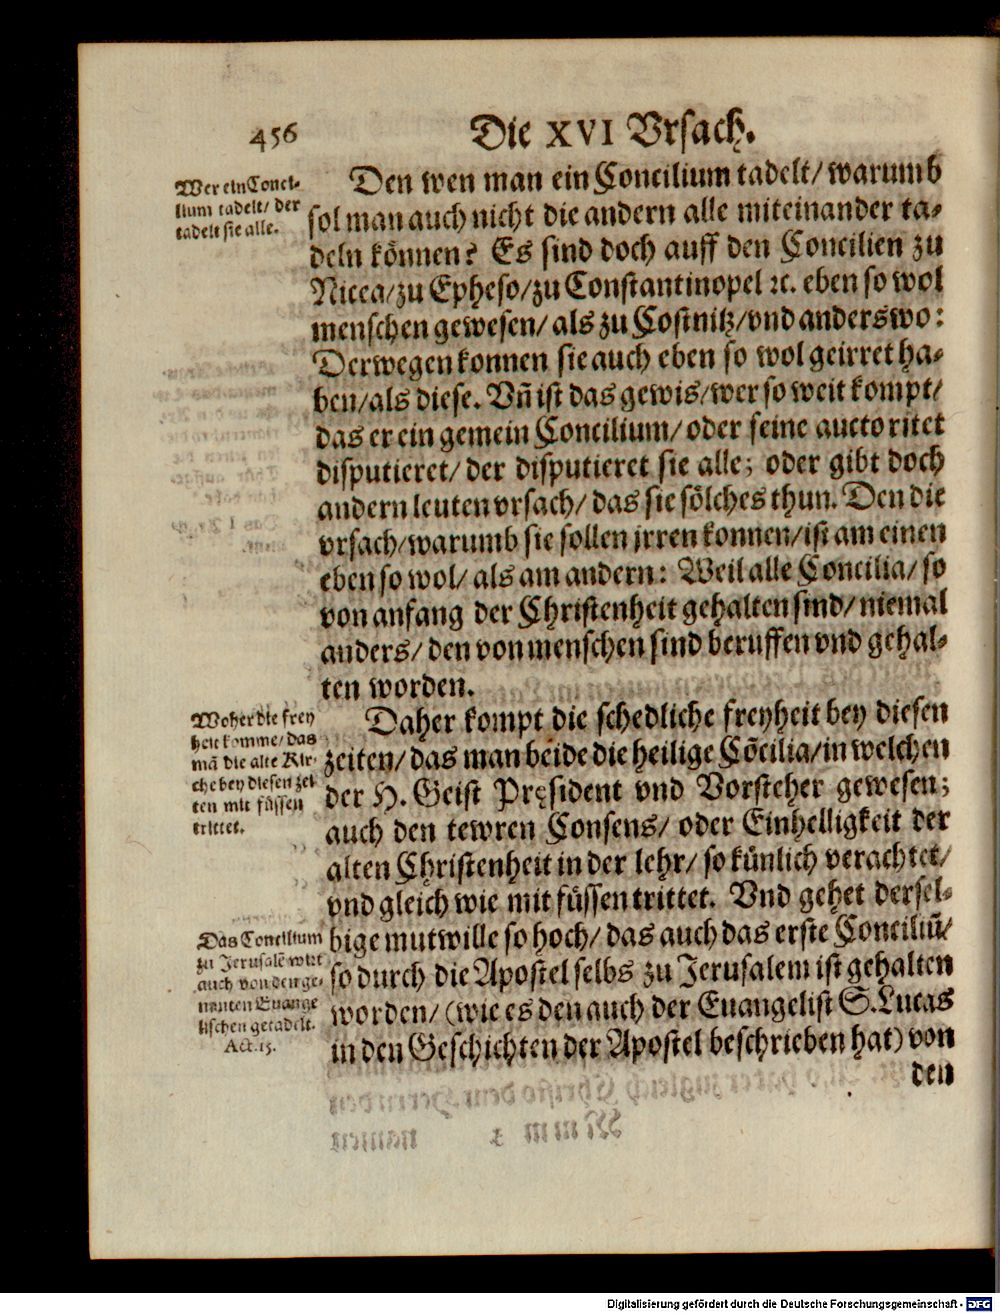 456
Die XVI Vrsach.
Wer ein Conci-
lium tadelt/ der
tadelt sie alle.
Den wen man ein Concilium tadelt/ warumb
sol man auch nicht die andern alle miteinander ta-
deln können? Es sind doch auff den Concilien zu
Nicea/ zu Epheso/ zu Constantinopel ꝛc. eben so wol
menschen gewesen/ als zu Costnitz/ vnd anderswo:
Derwegen konnen sie auch eben so wol geirret ha-
ben/ als diese. Vñ ist das gewis/ wer so weit kompt/
das er ein gemein Concilium/ oder seine auctoritet
disputieret/ der disputieret sie alle; oder gibt doch
andern leuten vrsach/ das sie sölches thun. Den die
vrsach/ warumb sie sollen jrren konnen/ ist am einen
eben so wol/ als am andern: Weil alle Concilia/ so
von anfang der Christenheit gehalten sind/ niemal
anders/ den von menschen sind beruffen vnd gehal-
ten worden.
Woher die frey
heit komme/ das
mã die alte Kir-
che bey diesen zei
ten mit füssen
trittet.
Daher kompt die schedliche freyheit bey diesen
zeiten/ das man beide die heilige Cõcilia/ in welchen
der H. Geist Pręsident vnd Vorsteher gewesen;
auch den tewren Consens/ oder Einhelligkeit der
alten Christenheit in der lehr/ so künlich verachtet/
vnd gleich wie mit füssen trittet. Vnd gehet dersel-
bige mutwille so hoch/ das auch das erste Conciliũ/
so durch die Apostel selbs zu Jerusalem ist gehalten
worden/ (wie es den auch der Euangelist S. Lucas
in den Geschichten der Apostel beschrieben hat) von
Das Concilium
zu Jerusalẽ wirt
auch von den ge-
nanten Euange
lischen getadelt.
Act. 15.
den
Digitalisierung gefördert durch die Deutsche Forschungsgemeinschaft - DFG